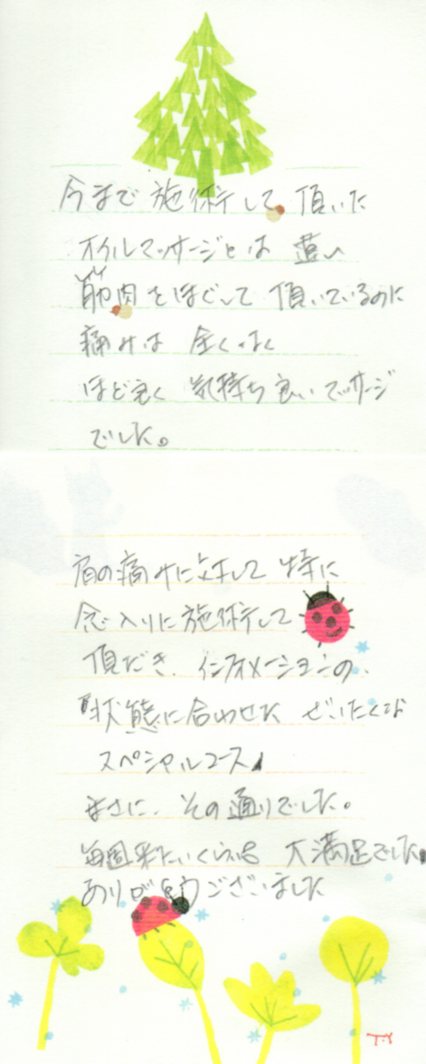 今まで 施術して 頂いた
オイルマッサージとは 違い
筋肉をほぐして 頂いているのに
痛みは 全くなく
ほど良く 気持ち良いマッサージ
でした。
肩の痛みに対して 特に
念入りに施術して
頂だき、インフォメーションの、
状態に合わせた ぜいたくな
スペシャルコース
まさに、その通りでした。
毎週来たいくらい 大満足でした。
ありがとうございました
T.Y